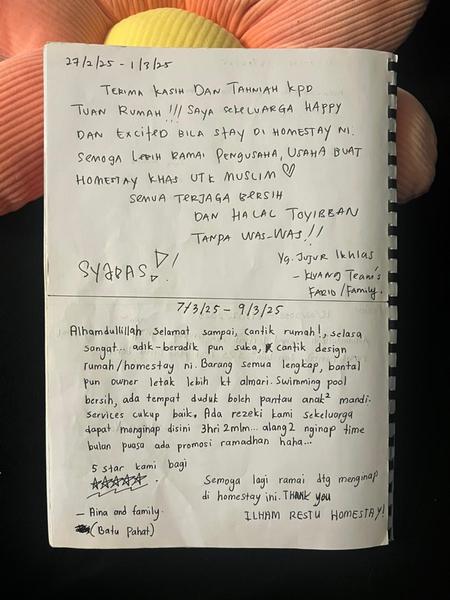 27/2/25 - 1/3/25
TERIMA KASIH DAN TAHNIAH KPD
TUAN RUMAH !!! SAYA SEKELUARGA HAPPY
DAN EXCITED BILA STAY DI HOMESTAY NI.
SEMOGA LEBIH RAMAI PENGUSAHA, USAHA BUAT
HOMESTAY KHAS UTK MUSLIM ♡
SEMUA TERJAGA BERSIH
DAN HALAL TOYIBBAN
TANPA WAS-WAS!!
SYABAS!!
Yg. Jujur Ikhlas
- KLUANG Team's
FARID/Family.
7/3/25 - 9/3/25
Alhamdulillah selamat sampai, cantik rumah!, selasa
sangat... adik-beradik pun suka, cantik design
rumah/homestay ni. Barang semua lengkap, bantal
pun owner letak lebih kt almari. Swimming pool
bersih, ada tempat duduk boleh pantau anak² mandi.
services cukup baik. Ada rezeki kami sekeluarga
dapat menginap disini 3hri 2mlm... alang2 nginap time
bulan puasa ada promosi ramadhan haha...
5 star kami bagi
☆☆☆☆☆.
Semoga lagi ramai dtg menginap
di homestay ini. THANK you
— Aina and family.
(Batu Pahat)
ILHAM RESTU HOMESTAY!